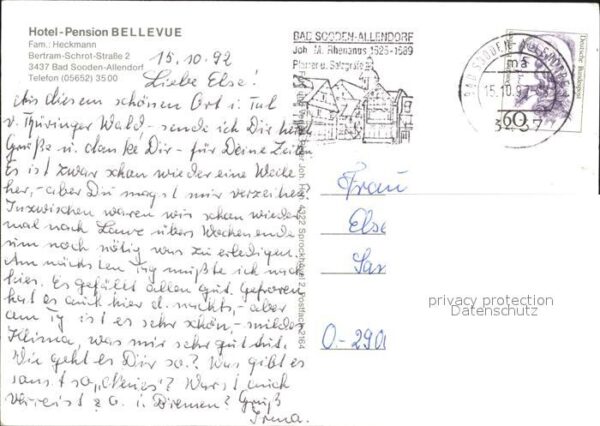 Hotel-Pension BELLEVUE
Fam.: Heckmann
Bertram-Schrot-Straße 2
3437 Bad Sooden-Allendorf
Telefon (05652) 3500
15.10.92
Liebe Else!
Aus diesem schönen Ort i. Tal
v. Thüringer Wald - sende ich Dir herzl.
Grüße u. danke Dir - für Deine Zeilen
Es ist zwar schon wieder eine Weile
her, - aber Du magst mir verzeihen.
Inzwischen waren wir schon wieder
mal nach übers Wochenende
um noch nötig was zu erledigen.
Am nächsten Tag mußte ich nach
hier. Es gefällt allen gut. Gefroren
hat es auch hier d. nachts, - aber
am Tg ist es sehr schön, - mildes
Klima, was mir sehr gut tut.
Wie geht es Dir so? Was gibt es
sonst so "Neues"? Warst auch
verreist z. i. Bremen? Gruß
Irma.
BAD SOODEN-ALLENDORF
Joh. M. Rhenanus 1525-1589
Pfarrer u. Salzgräfe
BAD SOODEN-ALLENDORF
ma
15.10.92
3437
60
Deutsche Bundespost
4322 Sprockhövel 2, Postfach 2164
Frau
Else
Sax
O-290
privacy protection
Datenschutz